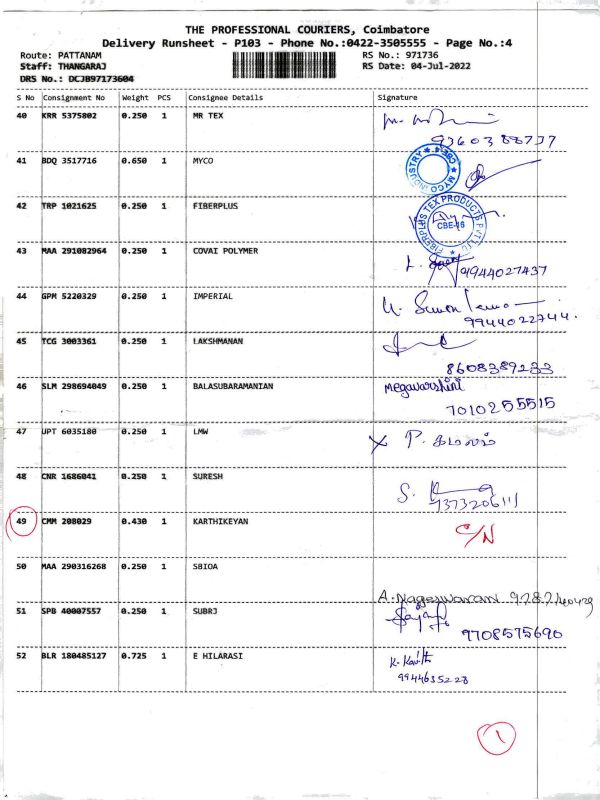 THE PROFESSIONAL COURIERS, Coimbatore
Delivery Runsheet - P103 - Phone No.:0422-3505555 - Page No.:4
Route: PATTANAM RS No.: 971736
Staff: THANGARAJ RS Date: 04-Jul-2022
DRS No.: DCJB97173604
S No Consignment No Weight PCS Consignee Details Signature
40 KRR 5375802 0.250 1 MR TEX
9360388737
41 BDQ 3517716 0.650 1 MYCO
MYCO INDUSTRY CBE
42 TRP 1021625 0.250 1 FIBERPLUS
FIBERPLUS TEX PRODUCTS PVT LTD CBE-16
43 MAA 291082964 0.250 1 COVAI POLYMER
9944027437
44 GPM 5220329 0.250 1 IMPERIAL
9944022744.
45 TCG 3003361 0.250 1 LAKSHMANAN
8608389233
46 SLM 298694049 0.250 1 BALASUBARAMANIAN Megavarshini
7010255515
47 UPT 6035180 0.250 1 LMW
P. கமலம்
48 CNR 1686041 0.250 1 SURESH
7373206111
49 CMM 208029 0.430 1 KARTHIKEYAN C/N
50 MAA 290316268 0.250 1 SBIOA
A. Nageswaran
51 SPB 40007557 0.250 1 SUBRJ
9708575690
52 BLR 180485127 0.725 1 E HILARASI K. Kavith
9944635228
1